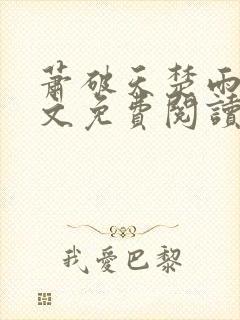 蕭破天楚雨
文免費閱讀
我愛巴黎